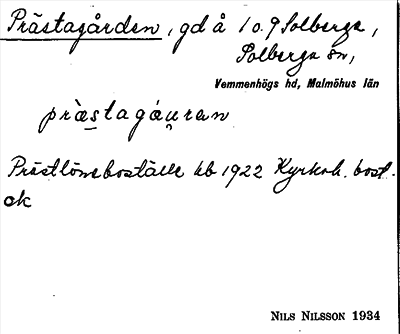 Prästagården, gd å 1 o. 9 Solberga,
Solberga sn,
Vemmenhögs hd, Malmöhus län
präs̲tagáu̯ran
Prästlöneboställe kb 1922 Kyrkoh. bost.
ok
NILS NILSSON 1934